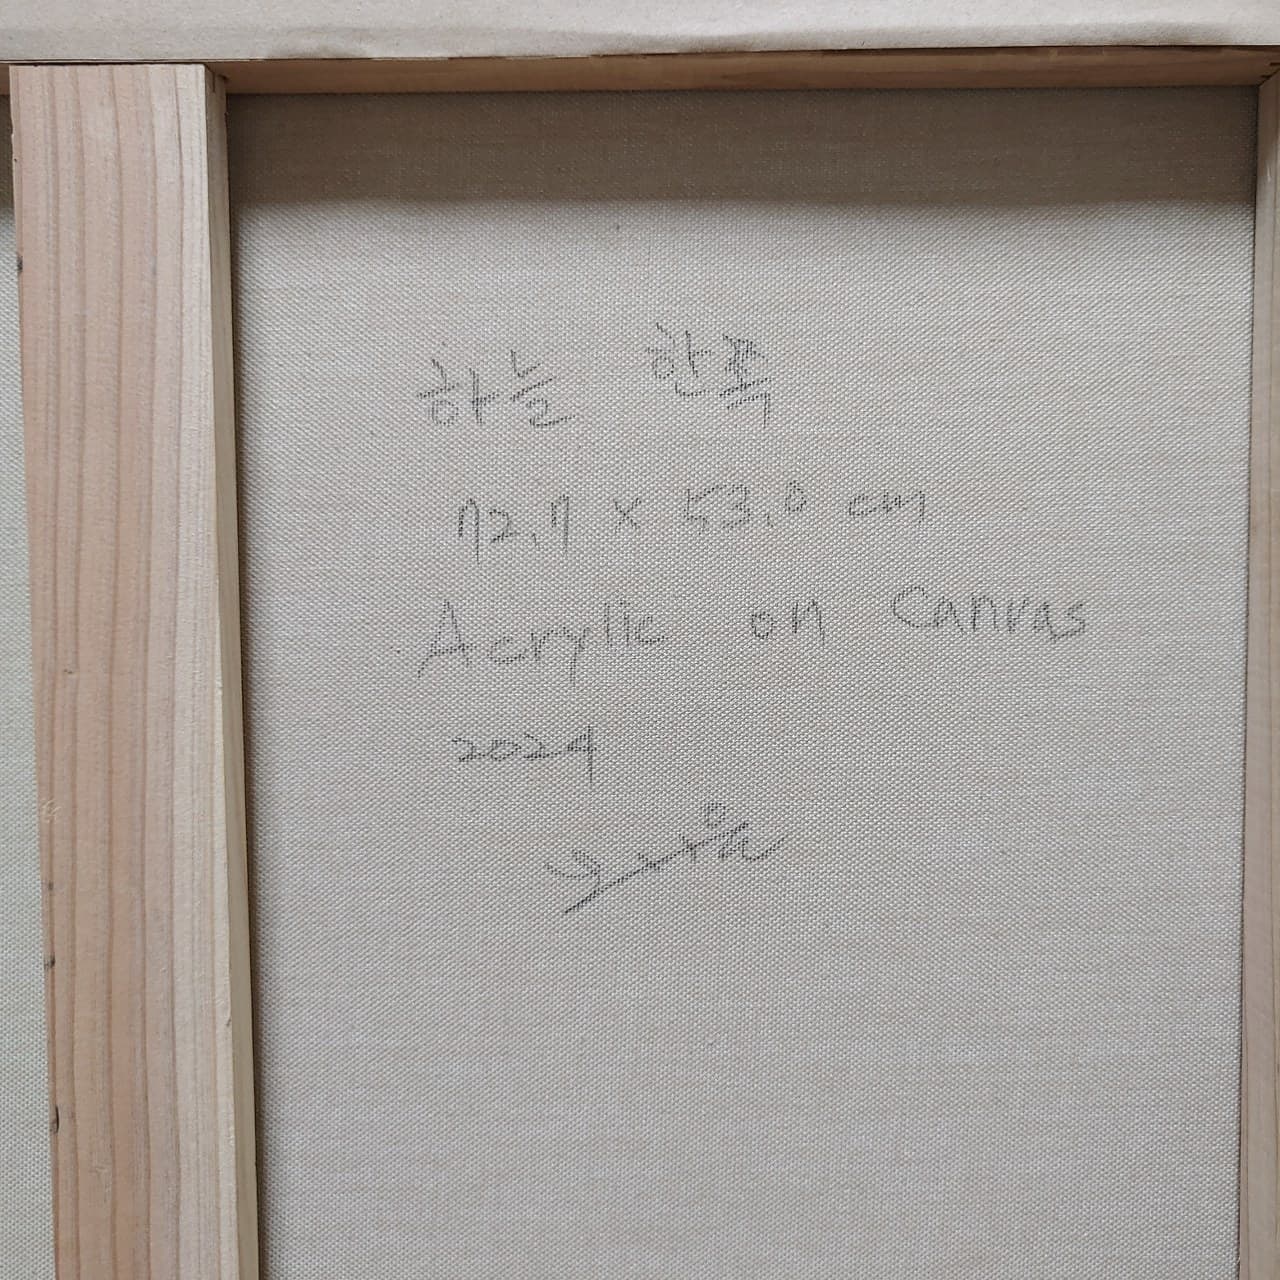 하늘 한폭
72.7 x 53.0 cm
Acrylic on Canvas
2024